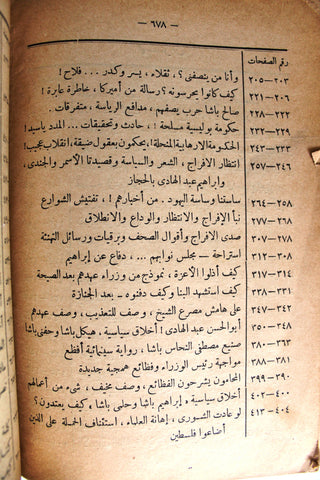 — ٦٧٨ —
رقم الصفحات
٢٠٣-٢٠٥ وأنا من ينصفنى؟، ثقلاء، يسر وكدر ... فلاح!
٢٠٦-٢٢١ كيف كانوا يحرسونه؟ رسالة من أميركا، خاطرة عابرة!
٢٢٢-٢٢٨ صالح باشا حرب يصفهم، مدافع الرياسة، متفرقات.
٢٢٩-٢٣٢ حكومة بوليسية مسلحة!، حادث وتحقيقات... المدد ياسيد!
٢٣٣-٢٤٣ الحكومة الارهابية المنحلة!، يحكمون بعقول ضيقة، انقلاب عجيب!
٢٤٦-٢٥٧ انتظار الافراج، الشعر والسياسة وقصيدتا الأسمر والجندى،
وابراهيم عبد الهادى بالحجاز
٢٥٨-٢٦٤ ساستنا وساسة اليهود. من أخبارهم!، تفتيش الشوارع
٢٦٨-٢٧٧ نبأ الإفراج والانتظار والوداع والانطلاق
٢٧٨-٣٠٧ صدى الافراج وأقوال الصحف وبرقيات ورسائل التهنئة
٣٠٨-٣١٢ استراحة — مجلس نوابهم ... دفاع عن إبراهيم
٣١٤-٣١٧ كيف أذلوا الأعزة، نموذج من وزراء عهدهم بعد الصيحة
٣٣١-٣٣٨ كيف استشهد البنا وكيف دفنوه — بعد الجنازة
٣٤٢-٣٤٧ على هامش مصرع الشيخ، وصف للتعذيب، وصف عهدهم
٣٤٨-٣٥٠ أبو الحسن عبد الهادى! أخلاق سياسية، هيكل باشا وحفى باشا
٣٦٣-٣٨٠ صنيع مصطفى النحاس باشا، رواية سينمائية أفظع
٣٨١-٣٨٨ مواجهة رئيس الوزراء وفظائع همجية جديدة
٣٩٠-٣٩٩ المحامون يشرحون الفظائع، وصف مخيف، شىء من أعمالهم
٤٠٠-٤٠٢ أخلاق سياسية، إبراهيم باشا وحلمى باشا، كيف يعتدون؟
٤٠٤-٤١٣ لو عادت الشورى، إهانة العلماء، استئناف الحملة على الذين
أضاعوا فلسطين